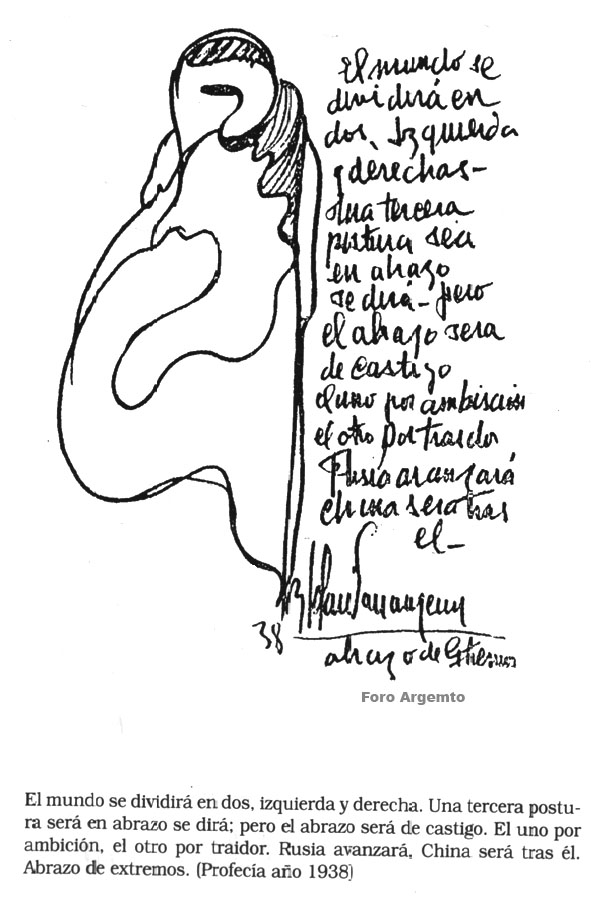 El mundo se
dividirá en
dos, Izquierda
y derechas-
Una tercera
postura sera
en abrazo
se dirá- pero
el abrazo sera
de castigo
el uno por ambision
el otro por traidor
Rusia avanzará
china sera tras
el-
38
abrazo de Extremos
Foro Argemto
El mundo se dividirá en dos, izquierda y derecha. Una tercera postu-
ra será en abrazo se dirá; pero el abrazo será de castigo. El uno por
ambición, el otro por traidor. Rusia avanzará, China será tras él.
Abrazo de extremos. (Profecía año 1938)